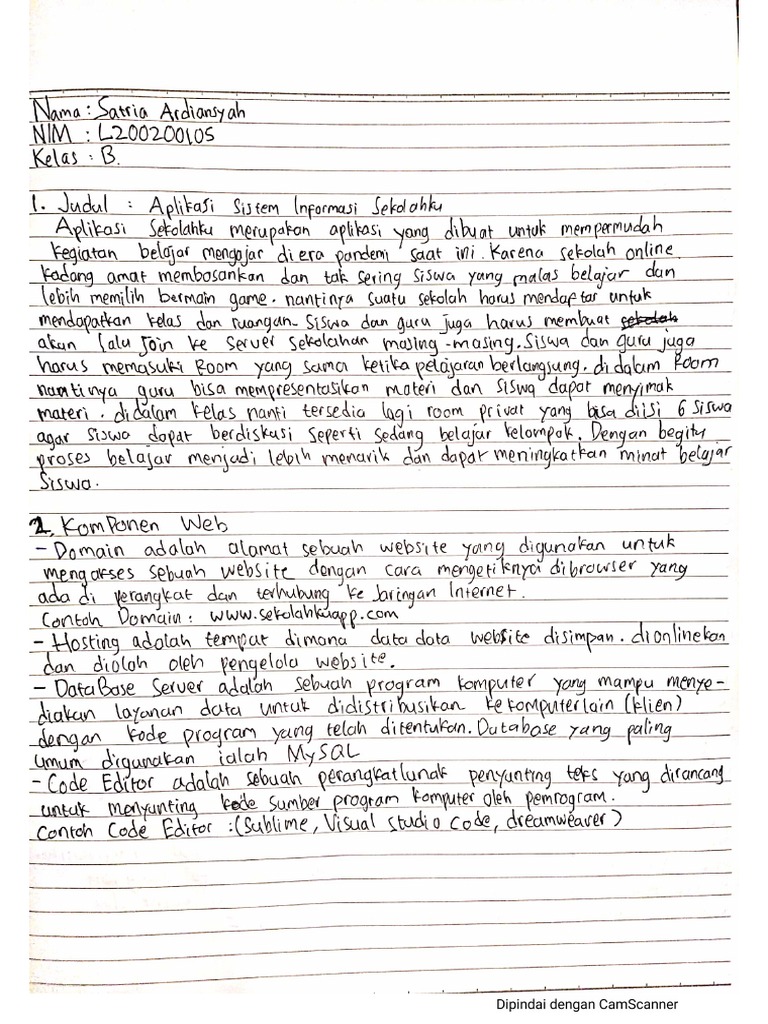 Nama : Satria Ardiansyah
NIM : L200200105
Kelas : B.
1. Judul : Aplikasi Sistem Informasi Sekolahku
Aplikasi Sekolahku merupakan aplikasi yang dibuat untuk mempermudah
kegiatan belajar mengajar di era pandemi saat ini. Karena sekolah online
kadang amat membosankan dan tak sering siswa yang malas belajar dan
lebih memilih bermain game. nantinya suatu sekolah harus mendaftar untuk
mendapatkan kelas dan ruangan. Siswa dan guru juga harus membuat sekolah
akun lalu join ke server sekolahan masing-masing. Siswa dan guru juga
harus memasuki Room yang sama ketika pelajaran berlangsung. di dalam Room
nantinya guru bisa mempresentasikan materi dan siswa dapat menyimak
materi. didalam kelas nanti tersedia lagi room privat yang bisa diisi 6 siswa
agar siswa dapat berdiskusi seperti sedang belajar kelompok. Dengan begitu
proses belajar menjadi lebih menarik dan dapat meningkatkan minat belajar
Siswa.
2. Komponen Web
- Domain adalah alamat sebuah website yang digunakan untuk
mengakses sebuah website dengan cara mengetiknya dibrowser yang
ada di perangkat dan terhubung ke Jaringan Internet.
Contoh Domain : www.sekolahkuapp.com
- Hosting adalah tempat dimana data data website disimpan. dionlinekan
dan diolah oleh pengelola website.
- DataBase Server adalah sebuah program komputer yang mampu menye-
diakan layanan data untuk didistribusikan ke komputer lain (klien)
dengan kode program yang telah ditentukan. Database yang paling
umum digunakan ialah MySQL
- Code Editor adalah sebuah perangkat lunak penyunting teks yang dirancang
untuk menyunting kode sumber program komputer oleh pemrogram.
Contoh Code Editor : (Sublime, Visual Studio Code, dreamweaver)
Dipindai dengan CamScanner